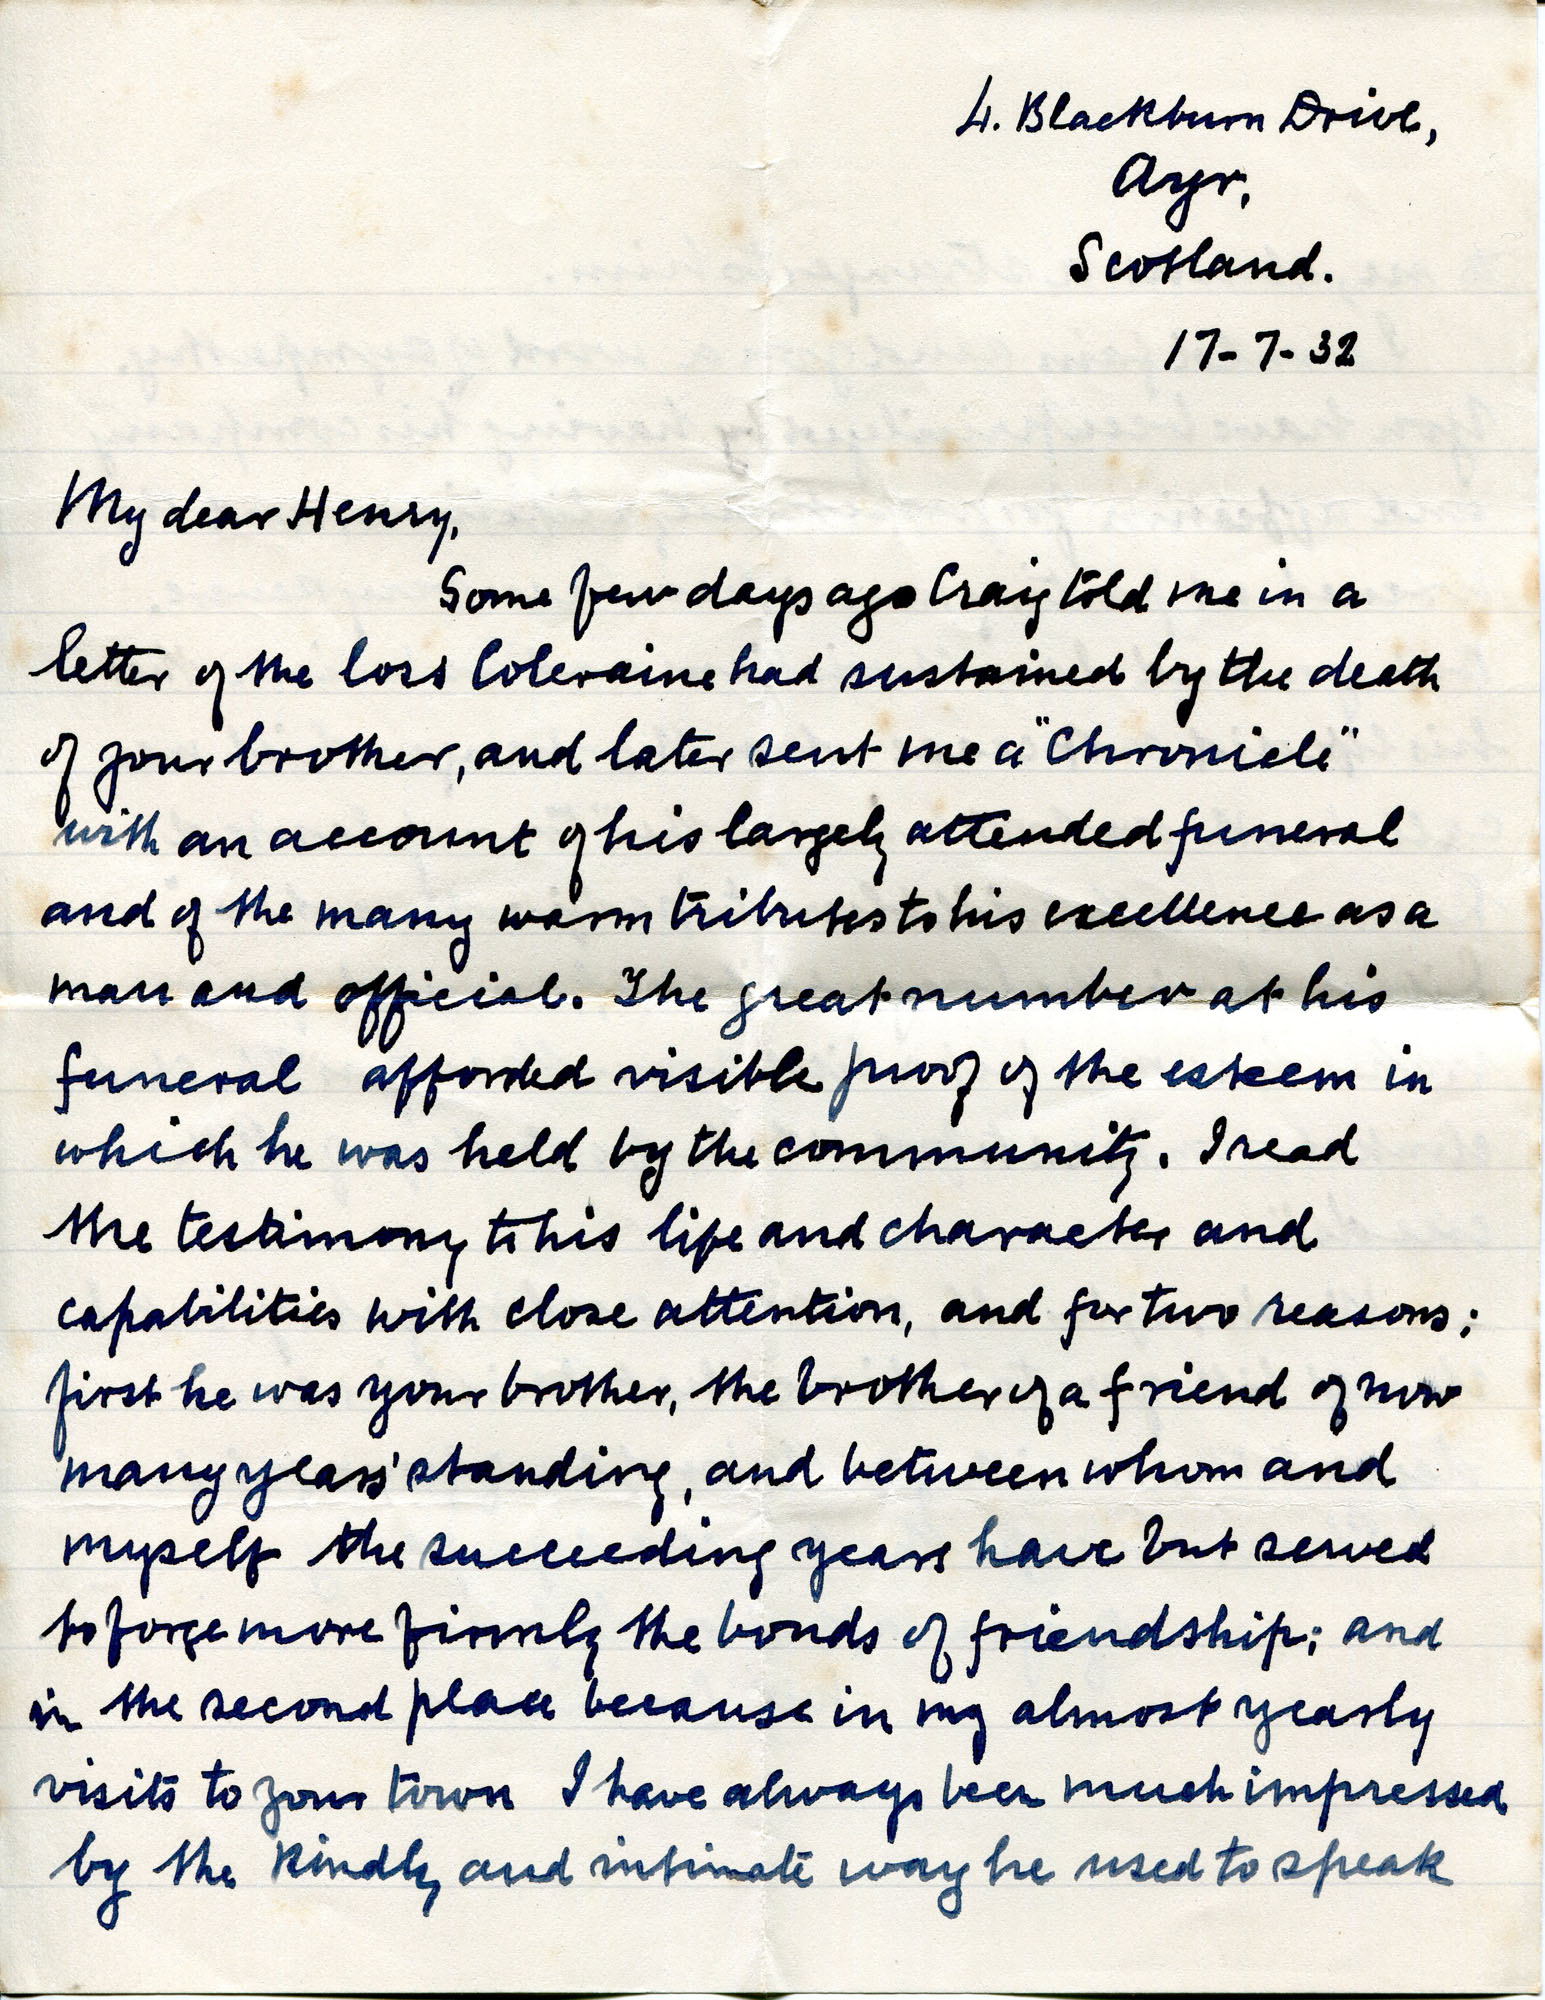 4. Blackburn Drive,
Ayr,
Scotland.
17-7-32
My dear Henry,
Some few days ago Craig told me in a
letter of the loss Coleraine had sustained by the death
of your brother, and later sent me a "Chronicle"
with an account of his largely attended funeral
and of the many warm tributes to his excellence as a
man and official. The great number at his
funeral afforded visible proof of the esteem in
which he was held by the community. I read
the testimony to his life and character and
capabilities with close attention, and for two reasons;
first he was your brother, the brother of a friend of now
many years' standing, and between whom and
myself the succeeding years have but served
to forge more firmly the bonds of friendship; and
in the second place because in my almost yearly
visits to your town I have always been much impressed
by the kindly and intimate way he used to speak